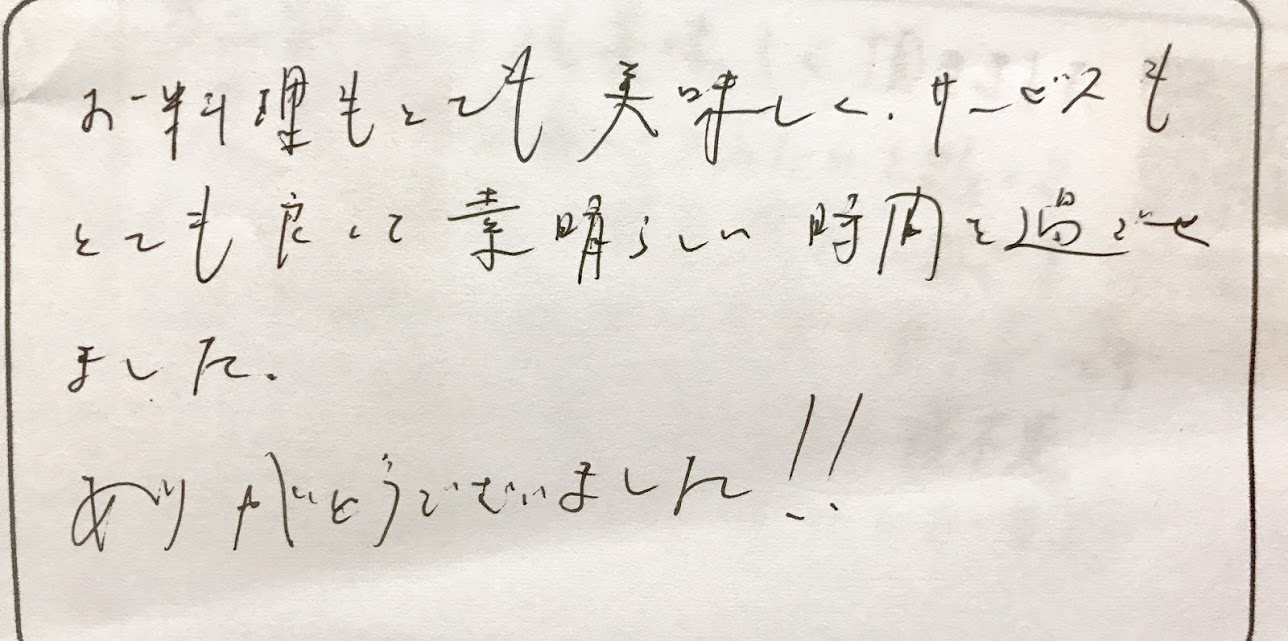 お料理もとても美味しく、サービスも
とても良くて素晴らしい時間を過ごせ
ました。
ありがとうございました!!